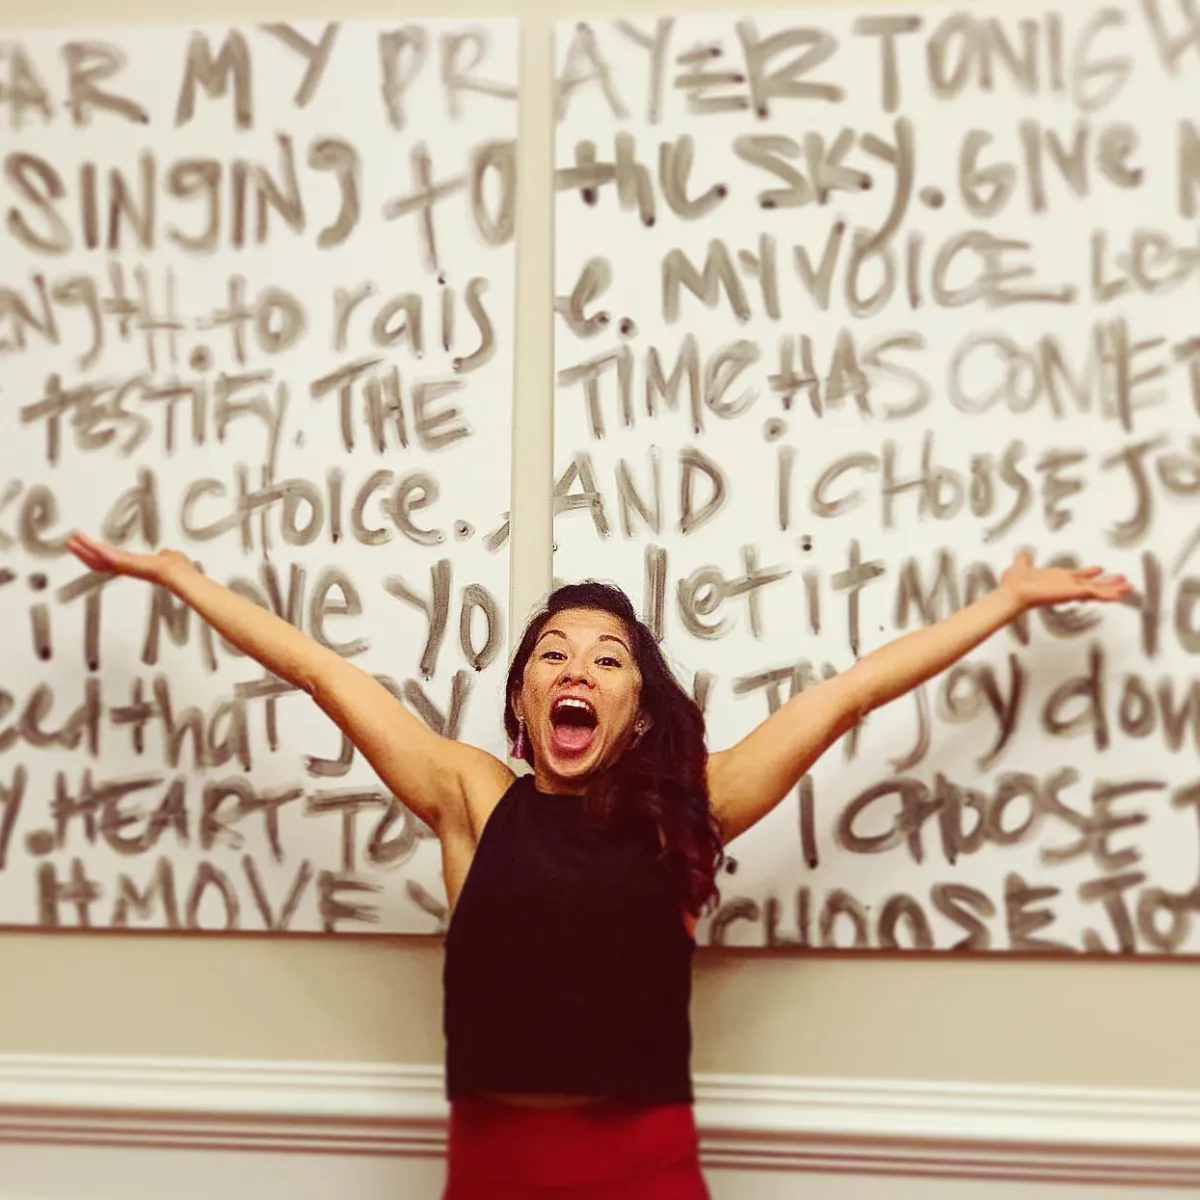 AR MY PRAYER TONIGH
SINGING to the SKY. GIVE
ENGtH. to raise. MY VOICE. Let
tESTiFy. THE TIMe HAS COME T
ke a cHOIce. AND i CHOOSE JOy
iT MOVe YO let it Move Yo
eed thaT JOY joy down
Y. HEART TO I CHOOSE J
it MOVE Y CHOOSE JOy